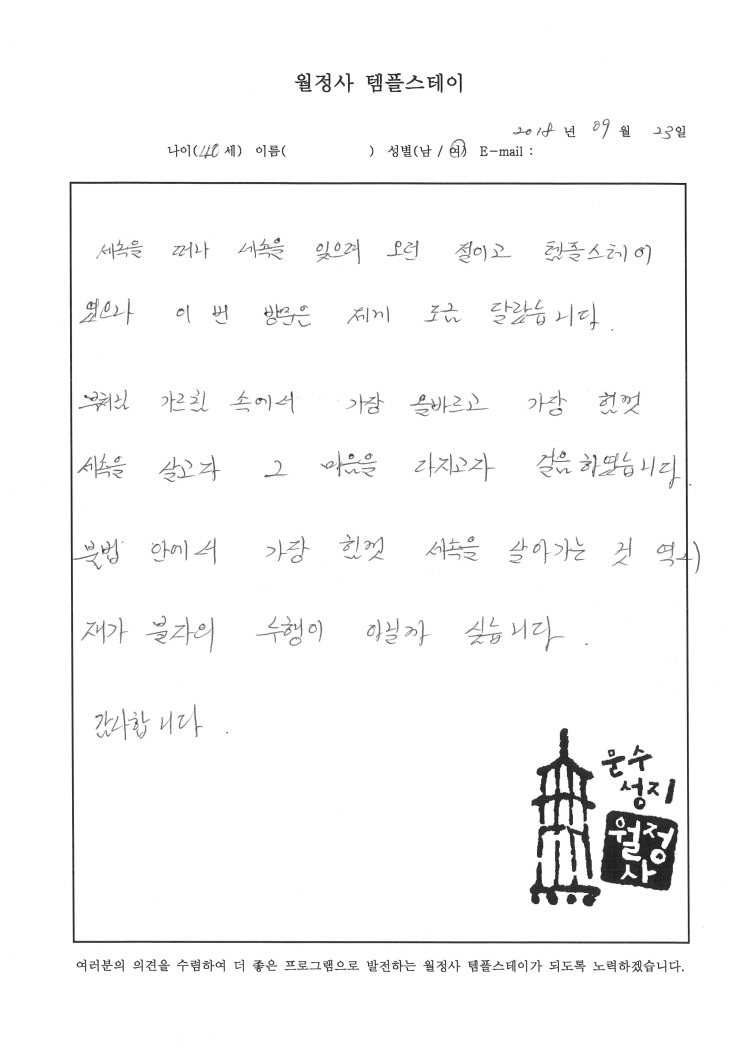 월정사 템플스테이
2018 년 09 월 23일
나이(40 세) 이름( ) 성별(남 / 여) E-mail :
세속을 떠나 세속을 잊으려 오던 절이고 템플스테이
였으나 이 번 방문은 제게 조금 달랐습니다.
부처님 가르침 속에서 가장 올바르고 가장 힘껏
세속을 살고자 그 마음을 다지고자 걸음 하였습니다.
불법 안에서 가장 힘껏 세속을 살아가는 것 역시
재가 불자의 수행이 아닐까 싶습니다.
감사합니다.
문수
성지
월정
사
여러분의 의견을 수렴하여 더 좋은 프로그램으로 발전하는 월정사 템플스테이가 되도록 노력하겠습니다.